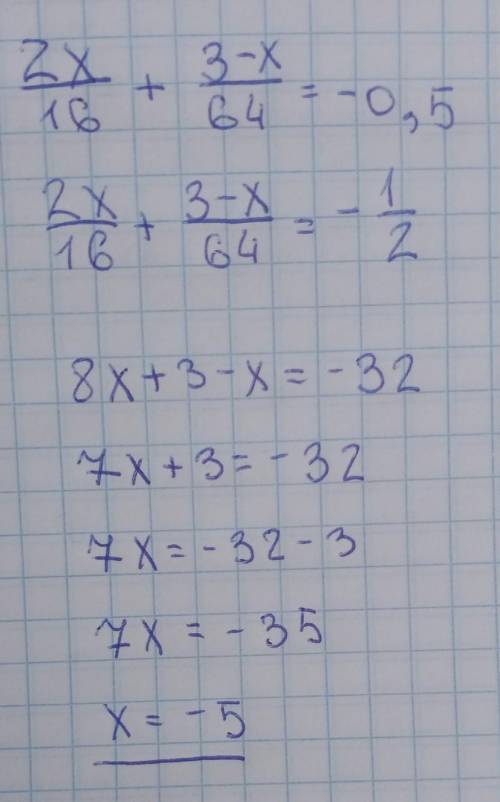 2x/16 + 3-x/64 = -0,5
2x/16 + 3-x/64 = -1/2
8x+3-x=-32
7x+3=-32
7x=-32-3
7x=-35
x=-5